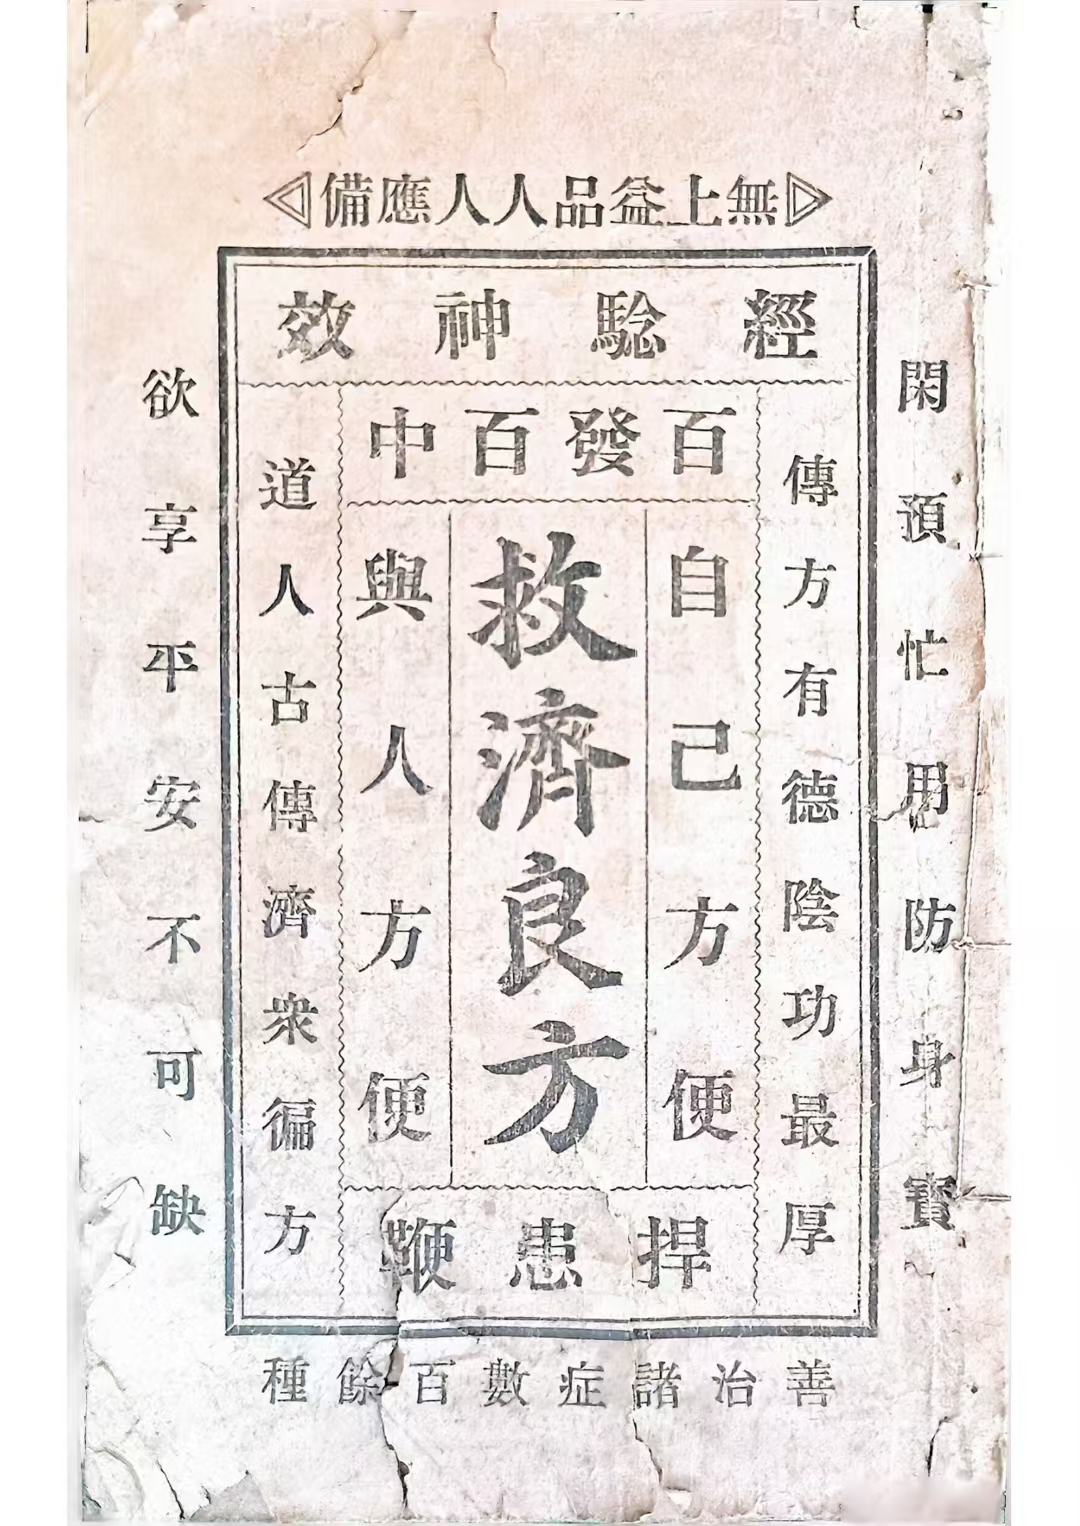 無上益品人人應備
經騐神效
百發百中
閑預忙用防身寶
傳方有德陰功最厚
自己方便
救濟良方
與人方便
道人古傳濟衆徧方
欲享平安不可缺
捍患鞭
善治諸症數百餘種